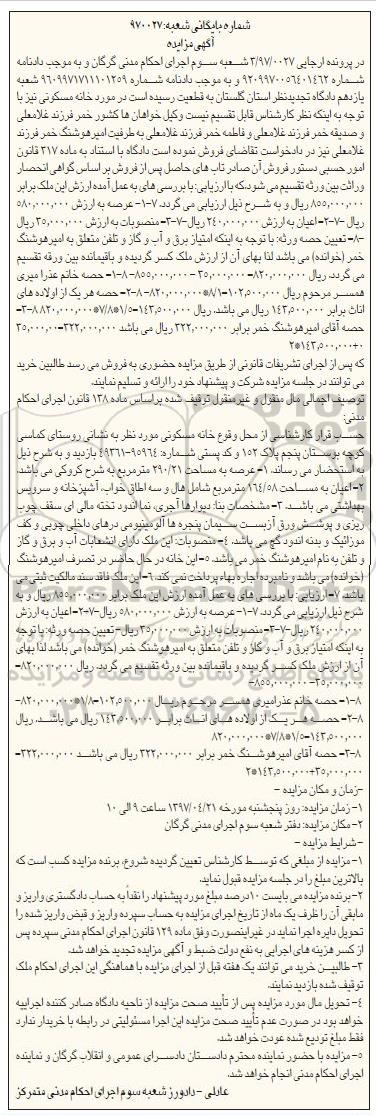 شماره بایگانی شعبه: ۹۷۰۰۲۷
آگهی مزایده
در پرونده اجرایی ۳/۹۷/۰۰۲۷ شعبه سوم اجرای احکام مدنی گرگان و به موجب دادنامه
شماره ۹۲۰۹۹۷۰۰۵۶۴۰۱۴۶۲ و به موجب دادنامه شماره ۹۶۰۹۹۷۱۷۱۱۱۰۱۲۵۹ شعبه
یازدهم دادگاه تجدیدنظر استان گلستان به قطعیت رسیده است در مورد خانه مسکونی نیز با
توجه به اینکه نظر کارشناس قابل تقسیم نیست وکیل خواهان ها کشور خمر فرزند غلامعلی
و صدیقه خمر فرزند غلامعلی و فاطمه خمر فرزند غلامعلی به طرفیت امیرهوشنگ خمر فرزند
غلامعلی نیز در دادخواست تقاضای فروش نموده است دادگاه با استناد به ماده ۳۱۷ قانون
امور حسبی دستور فروش آن صادر تاب های حاصل پس از فروش بر اساس گواهی انحصار
وراثت بین ورثه تقسیم می شود، که با ارزیابی: با بررسی های به عمل آمده ارزش این ملک برابر
۸۵۵,۰۰۰,۰۰۰ ریال و به شرح ذیل ارزیابی می گردد. ۷-۱- عرصه به ارزش ۵۸۰,۰۰۰,۰۰۰
ریال ۷-۲- اعیان به ارزش ۲۴۰,۰۰۰,۰۰۰ ریال ۷-۳- منصوبات به ارزش ۳۵,۰۰۰,۰۰۰ ریال
۸- تعیین حصه ورثه: با توجه به اینکه امتیاز برق و آب و گاز و تلفن متعلق به امیرهوشنگ
خمر (خوانده) می باشد لذا بهای آن از ارزش ملک کسر گردیده و باقیمانده بین ورقه تقسیم
می گردد. ریال ۸۲۰,۰۰۰,۰۰۰= ۳۵,۰۰۰,۰۰۰ - ۸۵۵,۰۰۰,۰۰۰ ۸-۱- حصه خانم عذرا میری
همسر مرحوم ریال ۱۰۲,۵۰۰,۰۰۰=۸/۱*۸۲۰,۰۰۰,۰۰۰ ۸-۲- حصه هر یک از اولاده های
اناث برابر ۱۴۳,۵۰۰,۰۰۰ ریال می باشد. ریال ۱۴۳,۵۰۰,۰۰۰=۱/۵*۷/۸*۸۲۰,۰۰۰,۰۰۰ ۸-۳-
حصه آقای امیرهوشنگ خمر برابر ۳۲۲,۰۰۰,۰۰۰ ریال می باشد ۳۲۲,۰۰۰,۰۰۰=۳۵,۰۰۰,۰۰
۰+۱۴۳,۵۰۰,۰۰۰*۲
که پس از اجرای تشریفات قانونی از طریق مزایده حضوری به فروش می رسد طالبین خرید
می توانند در جلسه مزایده شرکت و پیشنهاد خود را ارائه و تسلیم نمایند.
توصیف اجمالی مال منقول و غیرمنقول توقیف شده براساس ماده ۱۳۸ قانون اجرای احکام
مدنی:
حسب قرار کارشناسی از محل وقوع خانه مسکونی مورد نظر به نشانی روستای کماسی
کوچه بوستان پنجم پلاک ۱۵۲ و کد پستی شماره: ۹۰۹۶۴-۴۹۳۶۱ بازدید و به شرح ذیل
به استحضار می رساند. ۱- عرصه به مساحت ۲۹۰/۲۱ مترمربع به شرح کروکی می باشد.
۲- اعیان به مساحت ۱۶۴/۵۸ مترمربع شامل هال و سه اطاق خواب، آشپزخانه و سرویس
بهداشتی می باشد. ۳- مشخصات بنا: دیوارها آجری، نما اندود تخته مالی ای سقف چوب
ریزی و پوشش ورق آزبست سیمان پنجره ها آلومینیومی درهای داخلی چوبی و کف
موزائیک و بدنه اندود گچ می باشد. ۴- منصوبات: این ملک دارای انشعابات آب و برق و گاز
و تلفن به نام امیرهوشنگ خمر می باشد. ۵- این خانه در حال حاضر در تصرف امیرهوشنگ
(خوانده) می باشد و نامبرده اجاره بهاء پرداخت نمی کند. ۶- این ملک فاقد سند مالکیت ثبتی می
باشد. ۷- ارزیابی: با بررسی های به عمل آمده ارزش این ملک برابر ۸۵۵,۰۰۰,۰۰۰ ریال و به
شرح ذیل ارزیابی می گردد. ۷-۱- عرصه به ارزش ۵۸۰,۰۰۰,۰۰۰ ریال ۷-۲- اعیان به ارزش
۲۴۰,۰۰۰,۰۰۰ ریال ۷-۳- منصوبات به ارزش ۳۵,۰۰۰,۰۰۰ ریال - تعیین حصه ورثه: با توجه
به اینکه امتیاز برق و آب و گاز و تلفن متعلق به امیرهوشنگ خمر (خوانده) می باشد لذا بهای
آن از ارزش ملک کسر گردیده و باقیمانده بین ورثه تقسیم می گردد. ریال ۸۲۰,۰۰۰,۰۰۰=
۳۵,۰۰۰,۰۰۰-۸۵۵,۰۰۰,۰۰۰
۸-۱- حصه خانم عذرامیری همسر مرحوم ریال ۱۰۲,۵۰۰,۰۰۰=۱/۸*۸۲۰,۰۰۰,۰۰۰
۸-۲- حصه هر یک از اولاده های اناث برابر ۱۴۳,۵۰۰,۰۰۰ ریال می باشد. ریال
۱۴۳,۵۰۰,۰۰۰=۱/۵*۷/۸*۸۲۰,۰۰۰,۰۰۰
۸-۳- حصه آقای امیرهوشنگ خمر برابر ۳۲۲,۰۰۰,۰۰۰ ریال می باشد ۳۲۲,۰۰۰,۰۰۰=
۳۵,۰۰۰,۰۰۰+۱۴۳,۵۰۰,۰۰۰*۲
-زمان و مکان مزایده -
۱- زمان مزایده: روز پنجشنبه مورخه ۱۳۹۷/۰۴/۲۱ ساعت ۹ الی ۱۰
۲- مکان مزایده: دفتر شعبه سوم اجرای مدنی گرگان
- شرایط مزایده -
۱- مزایده از مبلغی که توسط کارشناس تعیین گردیده شروع، برنده مزایده کسب است که
بالاترین مبلغ را در جلسه مزایده قبول نماید.
۲- برنده مزایده می بایست ۱۰درصد مبلغ مورد پیشنهاد را نقداً به حساب دادگستری واریز و
مابقی آن را ظرف یک ماه از تاریخ اجرای مزایده به حساب سپرده واریز و قبض واریز شده را
تحویل دایره اجرا نماید در غیراینصورت وفق ماده ۱۲۹ قانون اجرای احکام مدنی سپرده پس
از کسر هزینه های اجرایی به نفع دولت ضبط و آگهی مزایده تجدید خواهد شد.
۳- طالبین خرید می توانند یک هفته قبل از اجرای مزایده با هماهنگی این اجرای احکام ملک
توقیف شده بازدید نمایند.
۴- تحویل مال مورد مزایده پس از تأیید صحت مزایده از ناحیه دادگاه صادر کننده اجراییه
خواهد بود در صورت عدم تأیید صحت مزایده این اجرا مسئولیتی در رابطه با خریدار ندارد
فقط مبلغ تودیع شده عودت خواهد شد.
۵- مزایده با حضور نماینده محترم دادستان دادسرای عمومی و انقلاب گرگان و نماینده
اجرای احکام مدنی انجام خواهد شد.
عادلی - دادورز شعبه سوم اجرای احکام مدنی متمرکز